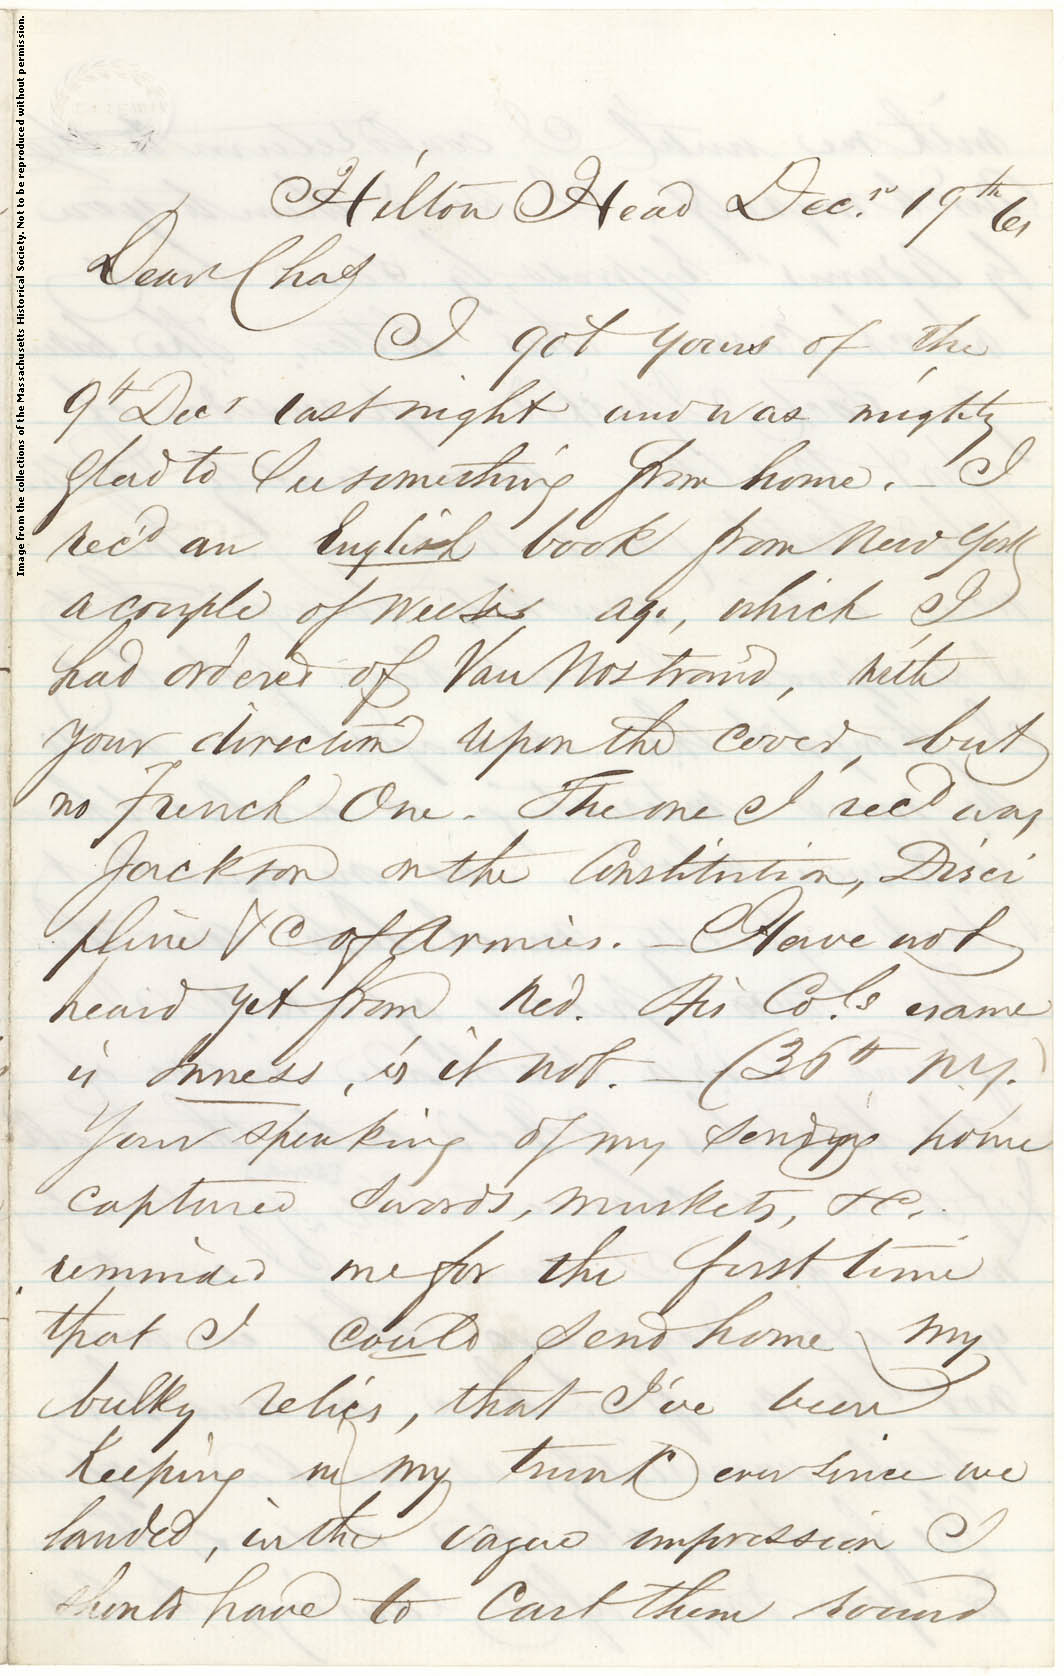 Image from the collections of the Massachusetts Historical Society. Not to be reproduced without permission.
Hilton Head Decr. 19th 61
Dear Chas
I got yours of the
9th Decr last night and was mighty
glad to see something from home. – I
rec'd an English book from New York
a couple of weeks ago, which I
had ordered of Van Nostrand, with
your direction upon the cover, but
no French One. The one I rec'd was
Jackson on the Constitution, Disci
pline &C of Armies. – Have not
heard yet from Ned. His Col.s name
is Inness, is it not. – (36th N.Y.)
Your speaking of my sending home
captured swords, muskets, &c.
reminded me for the first time
that I could send home my
bulky relics, that I've been
keeping in my trunk ever since we
landed, in the vague impression I
should have to cart them round